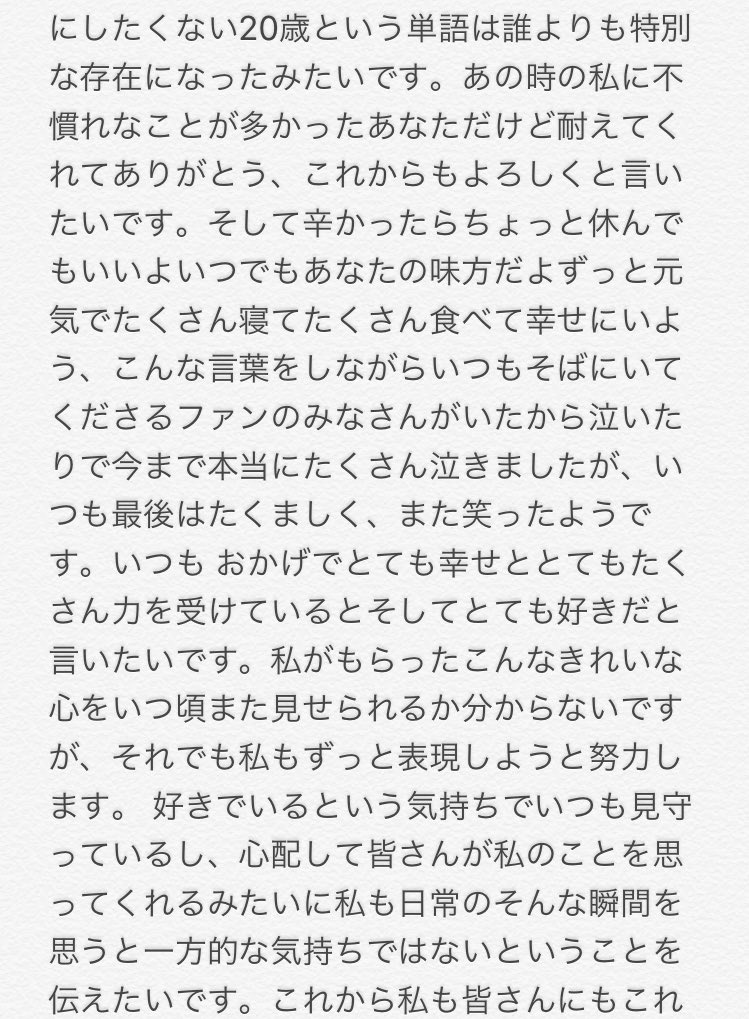 にしたくない20歳という単語は誰よりも特別
な存在になったみたいです。あの時の私に不
慣れなことが多かったあなただけど耐えてく
れてありがとう、これからもよろしくと言い
たいです。そして辛かったらちょっと休んで
もいいよいつでもあなたの味方だよずっと元
気でたくさん寝てたくさん食べて幸せにいよ
う、こんな言葉をしながらいつもそばにいて
くださるファンのみなさんがいたから泣いた
りで今まで本当にたくさん泣きましたが、い
つも最後はたくましく、また笑ったようで
す。いつも おかげでとても幸せととてもたく
さん力を受けているとそしてとても好きだと
言いたいです。私がもらったこんなきれいな
心をいつ頃また見せられるか分からないです
が、それでも私もずっと表現しようと努力し
ます。 好きでいるという気持ちでいつも見守
っているし、心配して皆さんが私のことを思
ってくれるみたいに私も日常のそんな瞬間を
思うと一方的な気持ちではないということを
伝えたいです。これから私も皆さんにもこれ